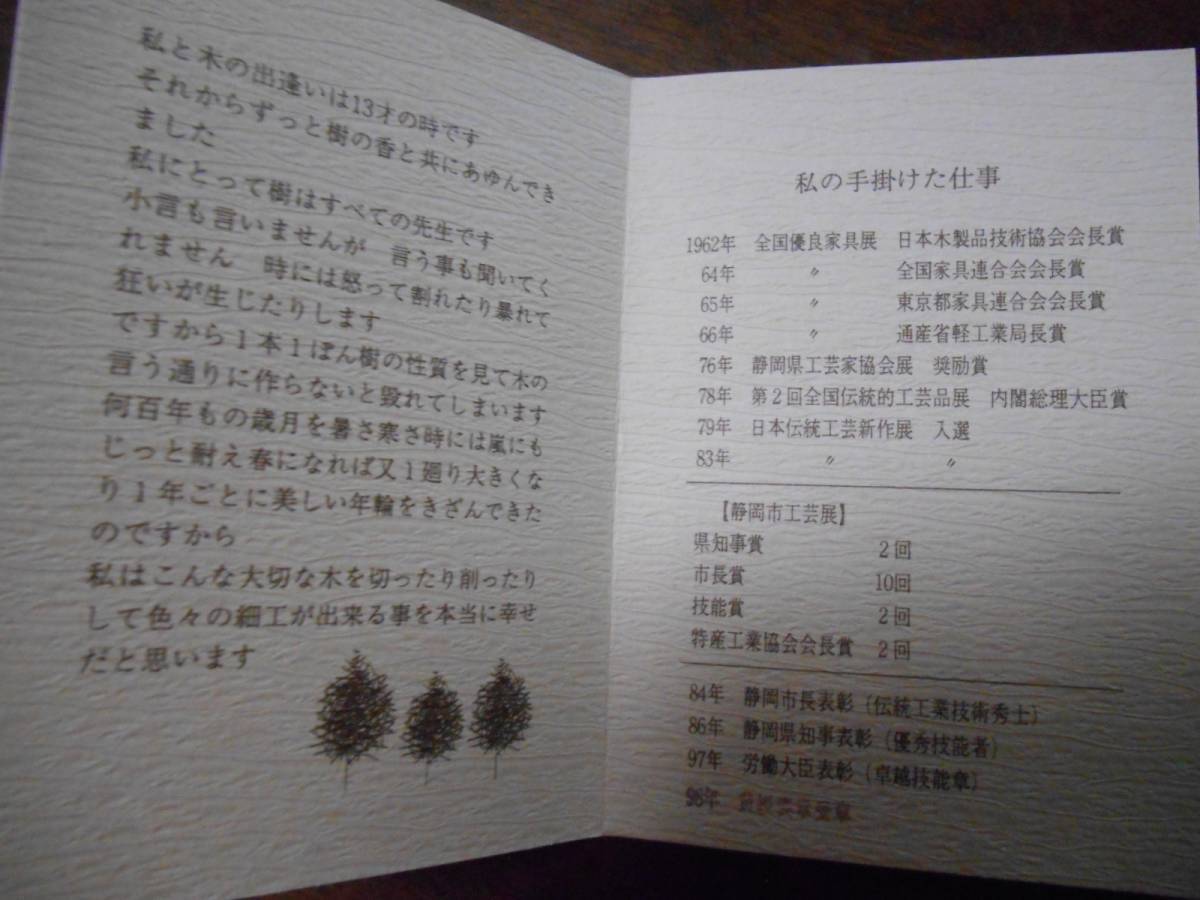 私と木の出逢いは13才の時です
それからずっと樹の香と共にあゆんでき
ました
私にとって樹はすべての先生です
小言も言いませんが　言う事も聞いてく
れません　時には怒って割れたり暴れて
狂いが生じたりします
ですから1本1ぽん樹の性質を見て木の
言う通りに作らないと毀れてしまいます
何百年もの歳月を暑さ寒さ時には嵐にも
じっと耐え春になれば又1廻り大きくな
り1年ごとに美しい年輪をきざんできた
のですから
私はこんな大切な木を切ったり削ったり
して色々の細工が出来る事を本当に幸せ
だと思います
私の手掛けた仕事
1962年　全国優良家具展　日本木製品技術協会会長賞
64年　〃　全国家具連合会会長賞
65年　〃　東京都家具連合会会長賞
66年　〃　通産省軽工業局長賞
76年　静岡県工芸家協会展　奨励賞
78年　第2回全国伝統的工芸品展　内閣総理大臣賞
79年　日本伝統工芸新作展　入選
83年　〃　〃
【静岡市工芸展】
県知事賞　2回
市長賞　10回
技能賞　2回
特産工業協会会長賞　2回
84年　静岡市長表彰（伝統工業技術秀士）
86年　静岡県知事表彰（優秀技能者）
97年　労働大臣表彰（卓越技能章）
98年